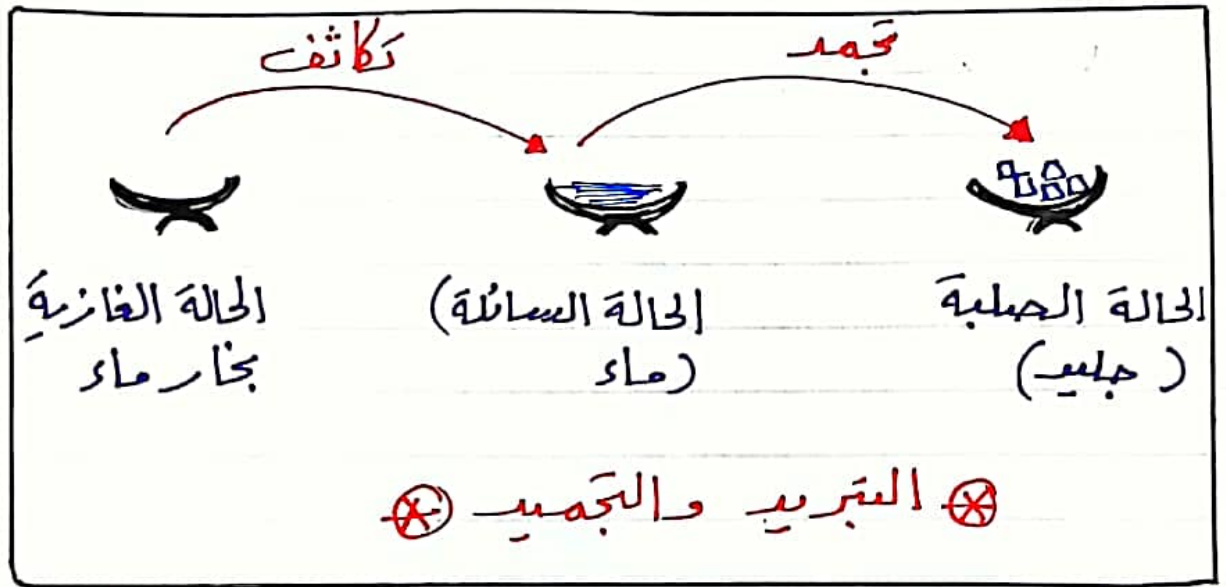 تجمد
تكاثف
الحالة الصلبة
(جليد)
الحالة السائلة)
(ماء
الحالة الغازية
بخار ماء
التبريد والتجميد